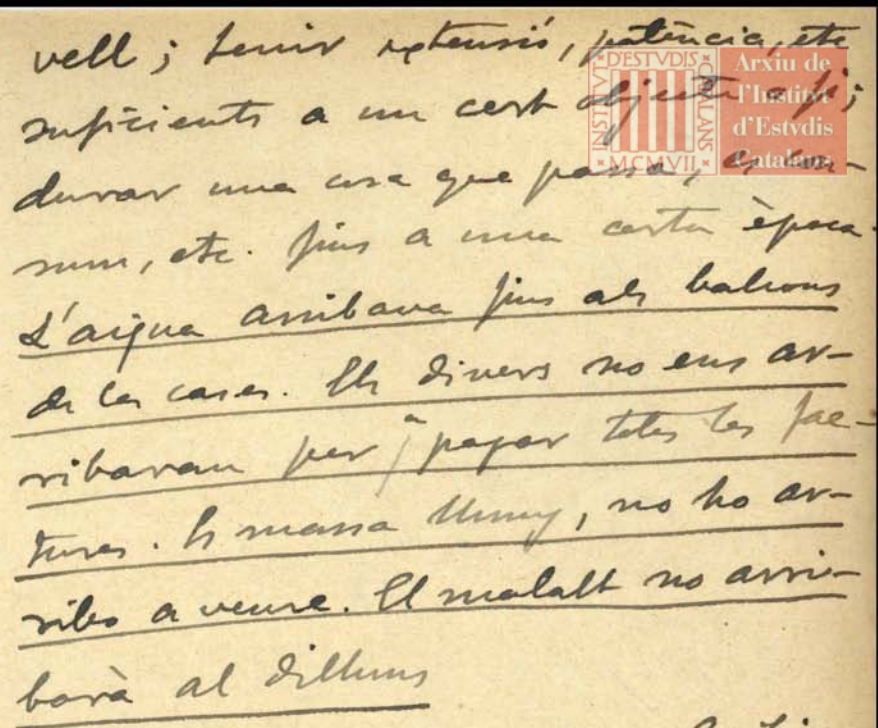 vell; tenir extensió, potència, etc
suficients a un cert objecte o fi;
durar una cosa que passa, es con-
sum, etc. fins a una certa època.
L'aigua arribava fins als balcons
de les cases. Els diners no ens ar-
ribaran per a pagar totes les fac-
tures. És massa lluny, no ho ar-
ribo a veure. El malalt no arri-
barà al dilluns
INSTITVT D'ESTVDIS CATALANS
MCMVII
Arxiu de
l'Institut
d'Estvdis
Catalans